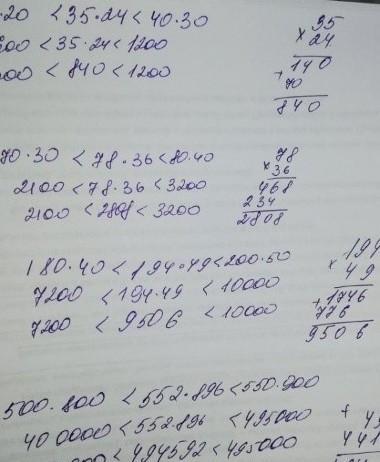 ·20 < 35·24 < 40·30
600 < 35·24 < 1200
600 < 840 < 1200
35
× 24
140
+ 70
840
70·30 < 78·36 < 80·40
2100 < 78·36 < 3200
2100 < 2808 < 3200
78
× 36
468
234
2808
180·40 < 194·49 < 200·50
7200 < 194·49 < 10000
7200 < 9506 < 10000
194
× 49
+ 1746
776
9506
500·800 < 552·896 < 550·900
400000 < 552·896 < 495000
< 494592 < 495000
+ 4
441